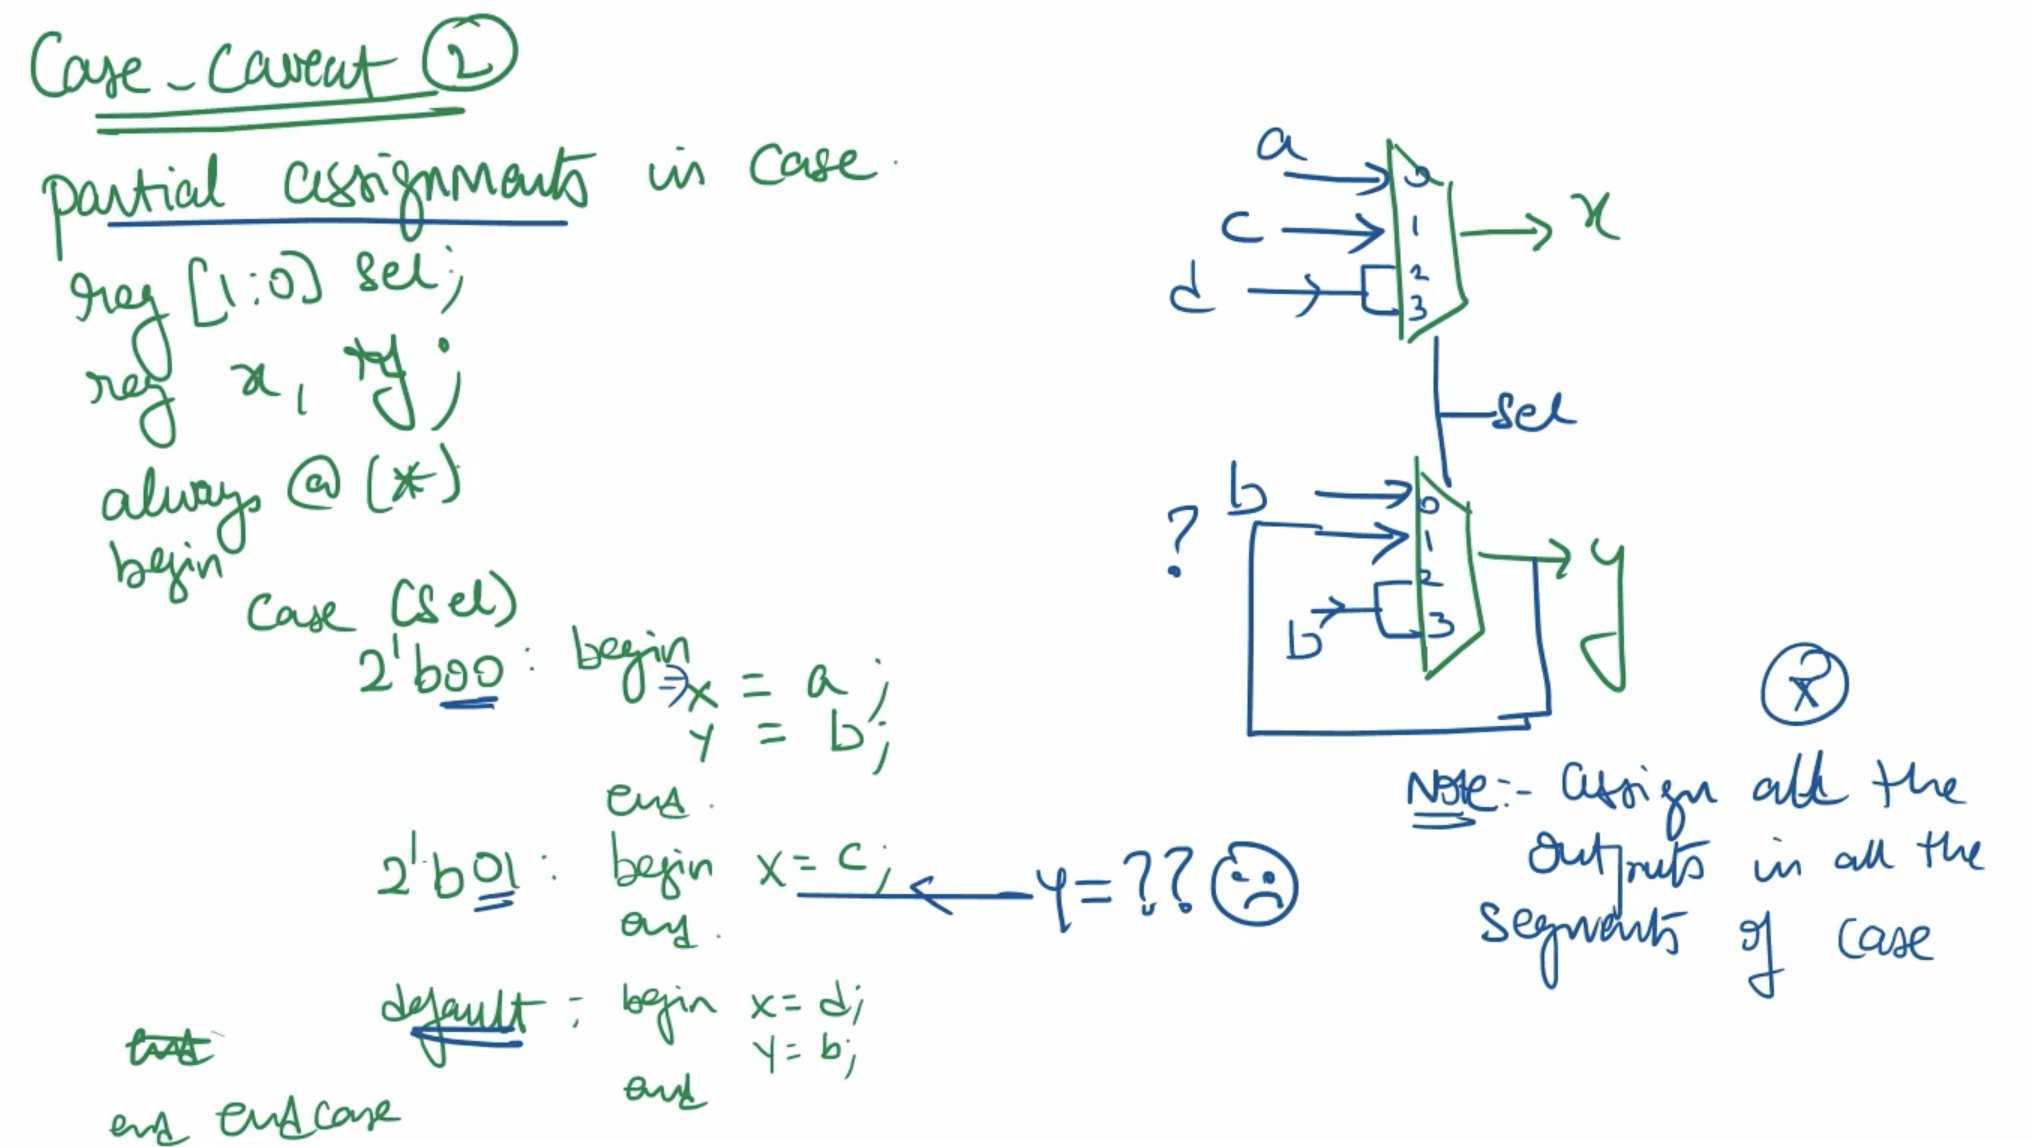 Case - Caveat 2
partial assignments in case.
reg [1:0] sel;
reg x, y;
always @ (*)
begin
case (sel)
2'b00 : begin
=> x = a;
y = b;
end.
2'b01 : begin x = c; y = ??
end.
default : begin x = d;
y = b;
end
end endcase
a
0
c
1
x
d
2
3
sel
b
0
?
1
y
2
b
3
Note:- Assign all the
outputs in all the
segments of case